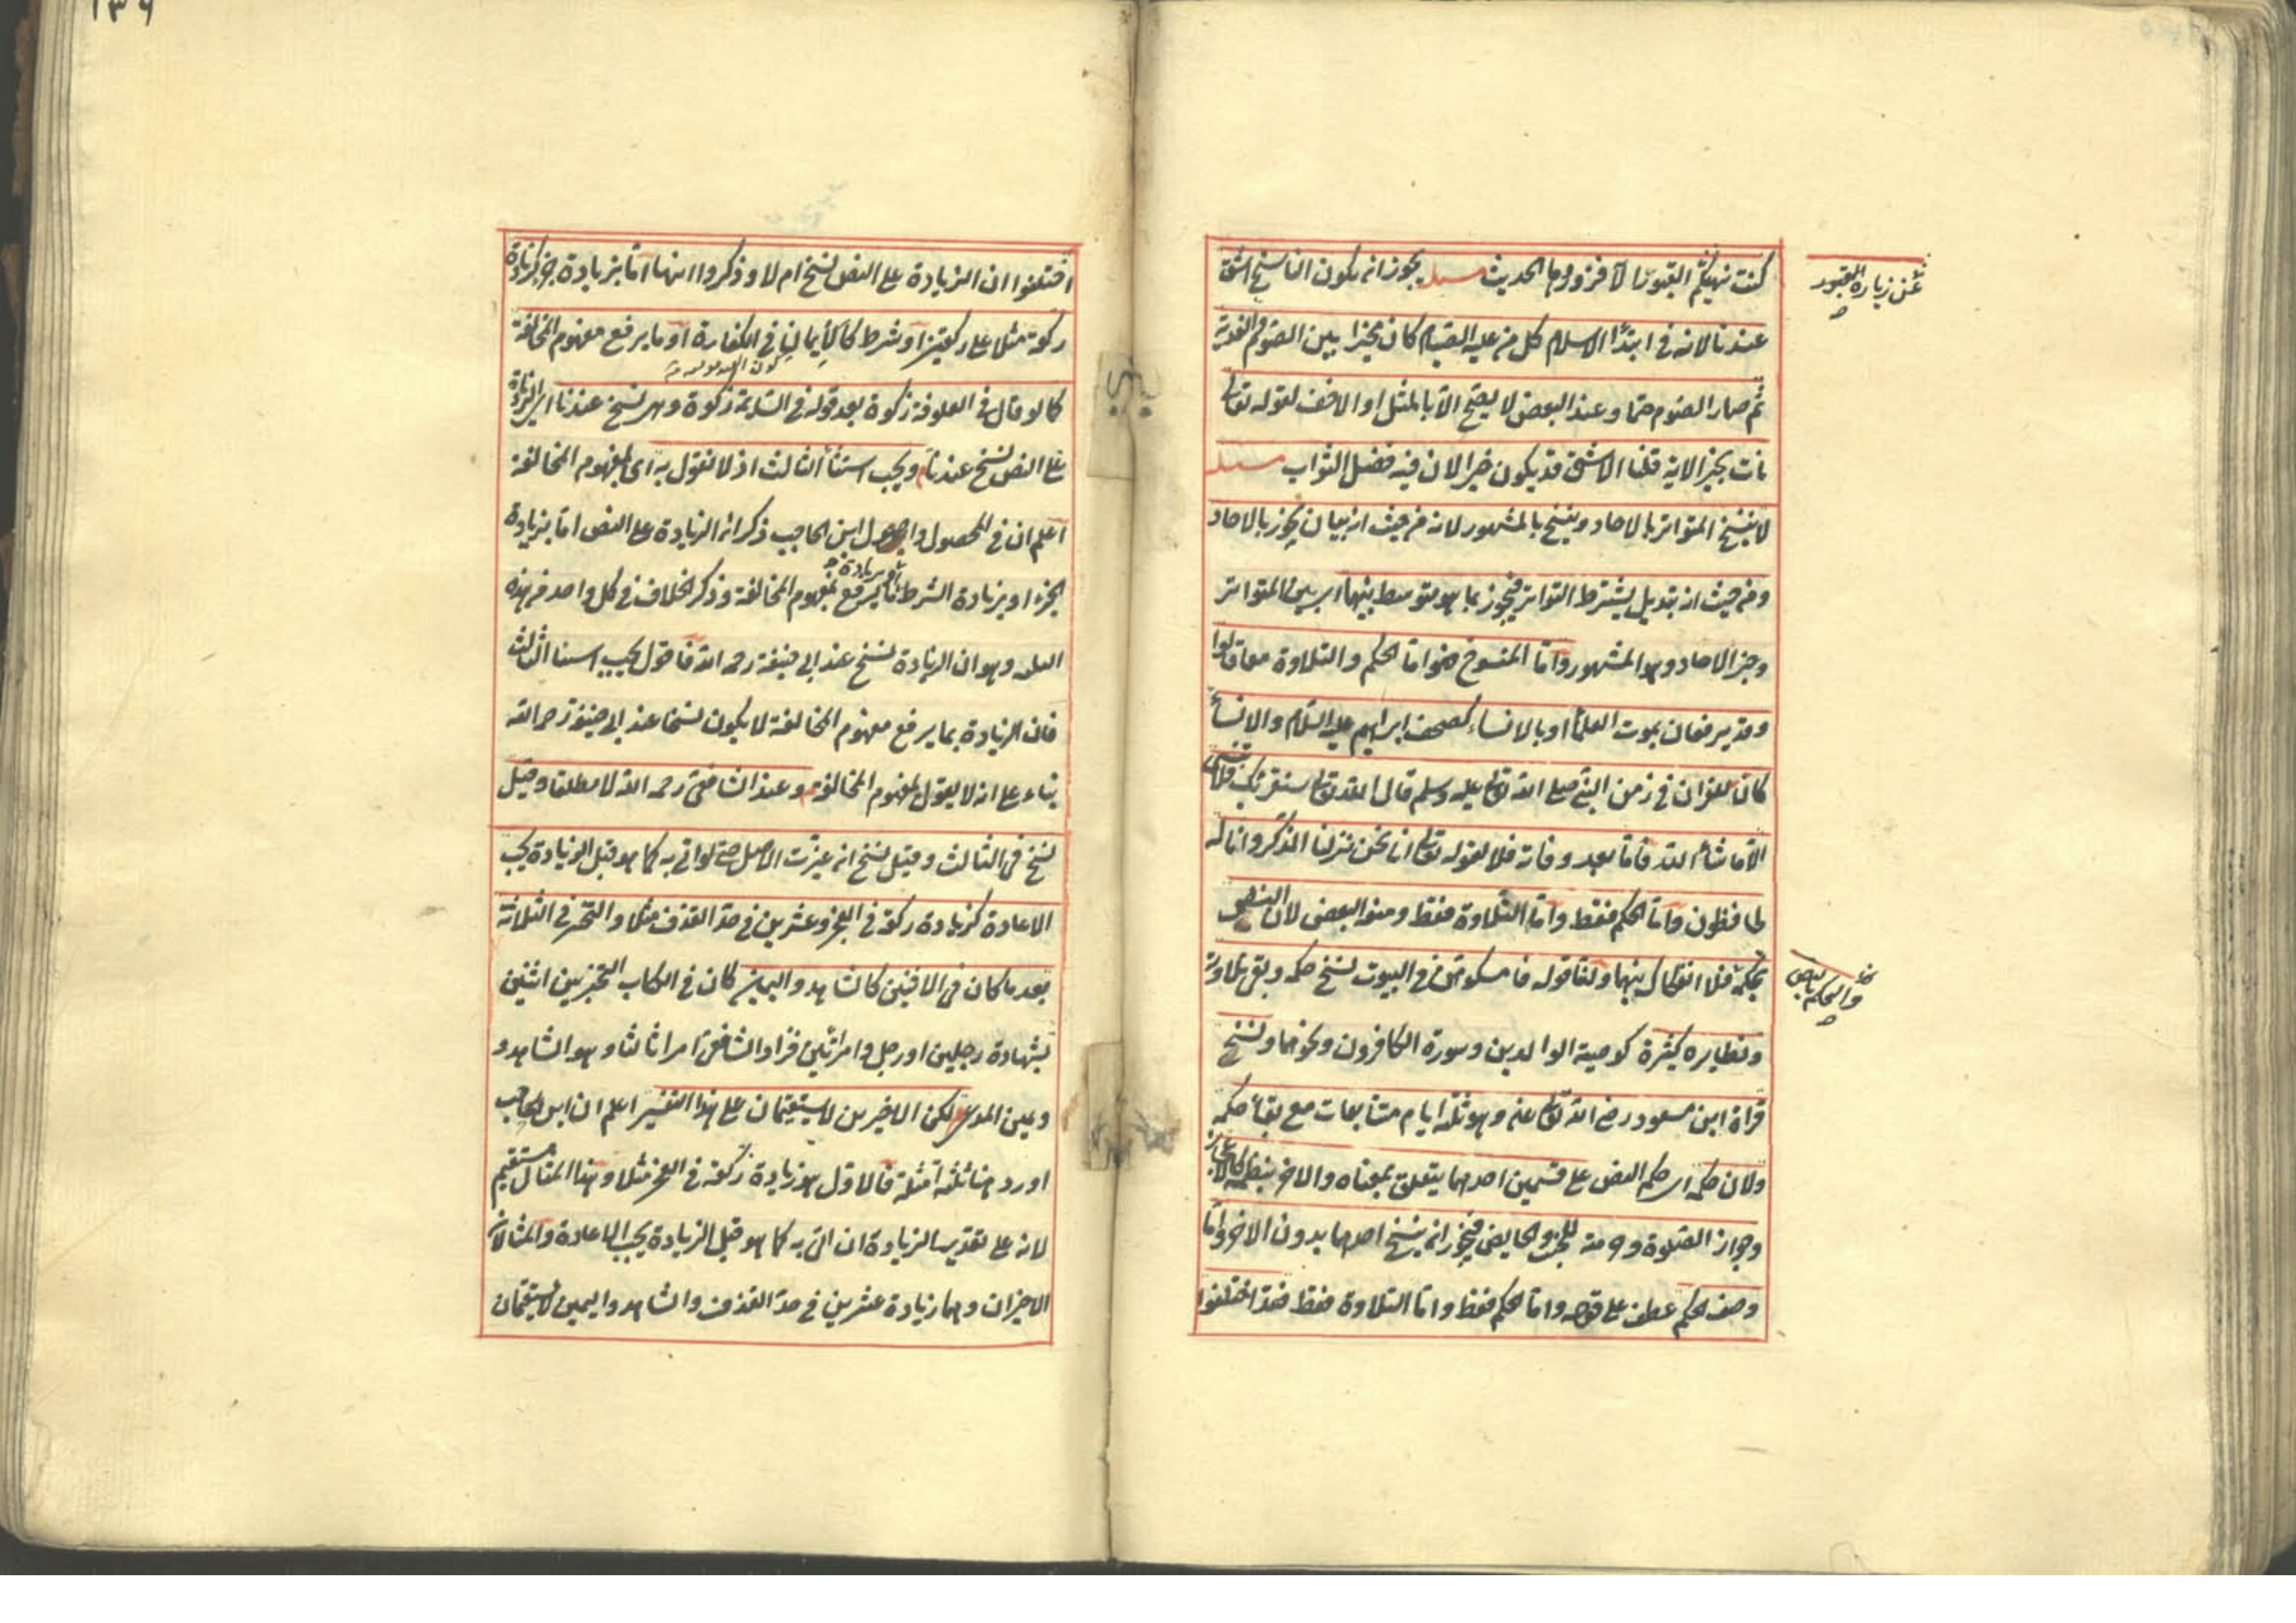 كنت نهيتكم القبور الا فزوروها الحديث مسئلة يجوز ان يكون الناسخ اشق
عن زيارة القبور
عندنا لانه في ابتدأ الاسلام كل من عليه الصيام كان مخيرا بين الصوم والفدية
ثم صار الصوم حتما وعند البعض لا يصح الا بالمثل او الاخف لقوله تعالى
نات بخير الاية قلنا الاشق قد يكون خيرا لان فيه فضل الثواب مسئلة
لا ينسخ المتواتر بالاحاد وينسخ بالمشهور لانه من حيث انه بيان يجوز بالاحاد
ومن حيث انه تبديل يشترط التواتر فيجوز بما هو متوسط بينهما اي بين المتواتر
وخبر الاحاد وهو المشهور واما المنسوخ فهو اما الحكم والتلاوة معا قالوا
وقد يرفعان بموت العلمأ او بالانساء كصحف ابراهيم عليه السلام والانسأ
كان للقران في زمن النبي صلى الله تعالى عليه وسلم قال الله تعالى سنقرئك فلا تنسى
الا ما شأ الله فاما بعد وفاته فلا لقوله تعالى انا نحن نزلنا الذكر وانا له
لحافظون واما الحكم فقط واما التلاوة فقط ومنعه البعض لان النص
بحكمه فلا انفكاك بينهما ولنا قوله فامسكوهن في البيوت نسخ حكمه وبقى تلاوته
والحكم بالنص
ونظايره كثيرة كوصية الوالدين وسورة الكافرون ونحوهما ونسخ
قرأة ابن مسعود رضي الله تعالى عنه وهو ثلثة ايام متتابعات مع بقأ حكمه
ولان حكمه اي حكم النص على قسمين احدهما يتعلق بمعناه والاخر بنظمه كالاعجاز
وجواز الصلوة وحرمته للجنب والحايض فيجوز ان ينسخ احدهما بدون الاخر واما
وصف الحكم عطف على قوله واما الحكم فقط واما التلاوة فقط فقد اختلفوا
اختلفوا ان الزيادة على النص نسخ ام لا وذكروا انها اما بزيادة جزء كزيادة
ركوة مثلا على ركعتين او شرط كالايمان في الكفارة او ما يرفع مفهوم المخالفة
كما لو قال في العلوفة زكوة بعد قوله في السايمة زكوة وهي نسخ عندنا اي الزيادة
على النص نسخ عندنا ويجب استثنأ الثالث اذ لا نقول به اى بمفهوم المخالفة
اعلم ان في المحصول واصول ابن الحاجب ذكر ان الزيادة على النص اما بزيادة
الجزء او بزيادة الشرط او بزيادة ما يرفع مفهوم المخالفة وذكر الخلاف في كل واحد من هذه
الثلثة وهو ان الزيادة نسخ عند ابي حنيفة رحمه الله فاقول يجب استثنا الثالث
فان الزيادة بما يرفع مفهوم المخالفة لا يكون نسخا عند ابي حنيفة رحمه الله
بناء على انه لا يقول بمفهوم المخالفة وعند الشافعي رحمه الله لا مطلقا وقيل
نسخ في الثالث وقيل نسخ ان غيرت الاصل حتى لو اتى به كما هو قبل الزيادة يجب
الاعادة كزيادة ركعة في الفجر وعشرين في حد القذف مثلا والتخيير في الثلاثة
بعد ما كان في الاثنين كالشاهد واليمين كان في الكتاب التخيير بين اثنين
بشهادة رجلين او رجل وامرأتين فزاد الشافعي امرا ثالثا وهو الشاهد و
ويمين المدعي لكن الاخيرين لا يستقيمان على هذا التفسير اعلم ان ابن الحاجب
اورد هنا ثلثة امثلة فالاول هو زيادة ركعة في الفجر مثلا وهذا المثال مستقيم
لانه على تقدير الزيادة ان اتى به كما هو قبل الزيادة يجب الاعادة والمثالان
الاخيران وهما زيادة عشرين في حد القذف والشاهد واليمين لا يستقيمان